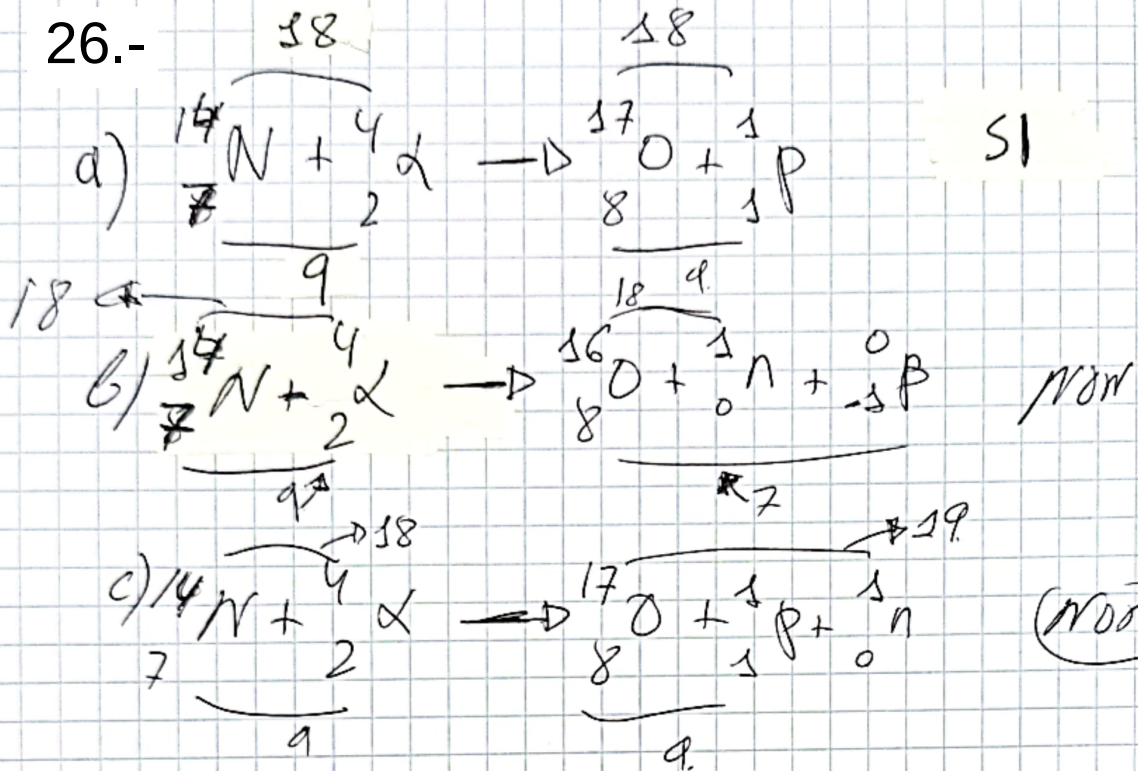 26.-
18 18
a) ¹⁴₇N + ⁴₂α → ¹⁷₈O + ¹₁p SI
9 9
18 18
b) ¹⁴₇N + ⁴₂α → ¹⁶₈O + ¹₀n + ⁰₋₁β non
9 7
18 19
c) ¹⁴₇N + ⁴₂α → ¹⁷₈O + ¹₁p + ¹₀n
9 9